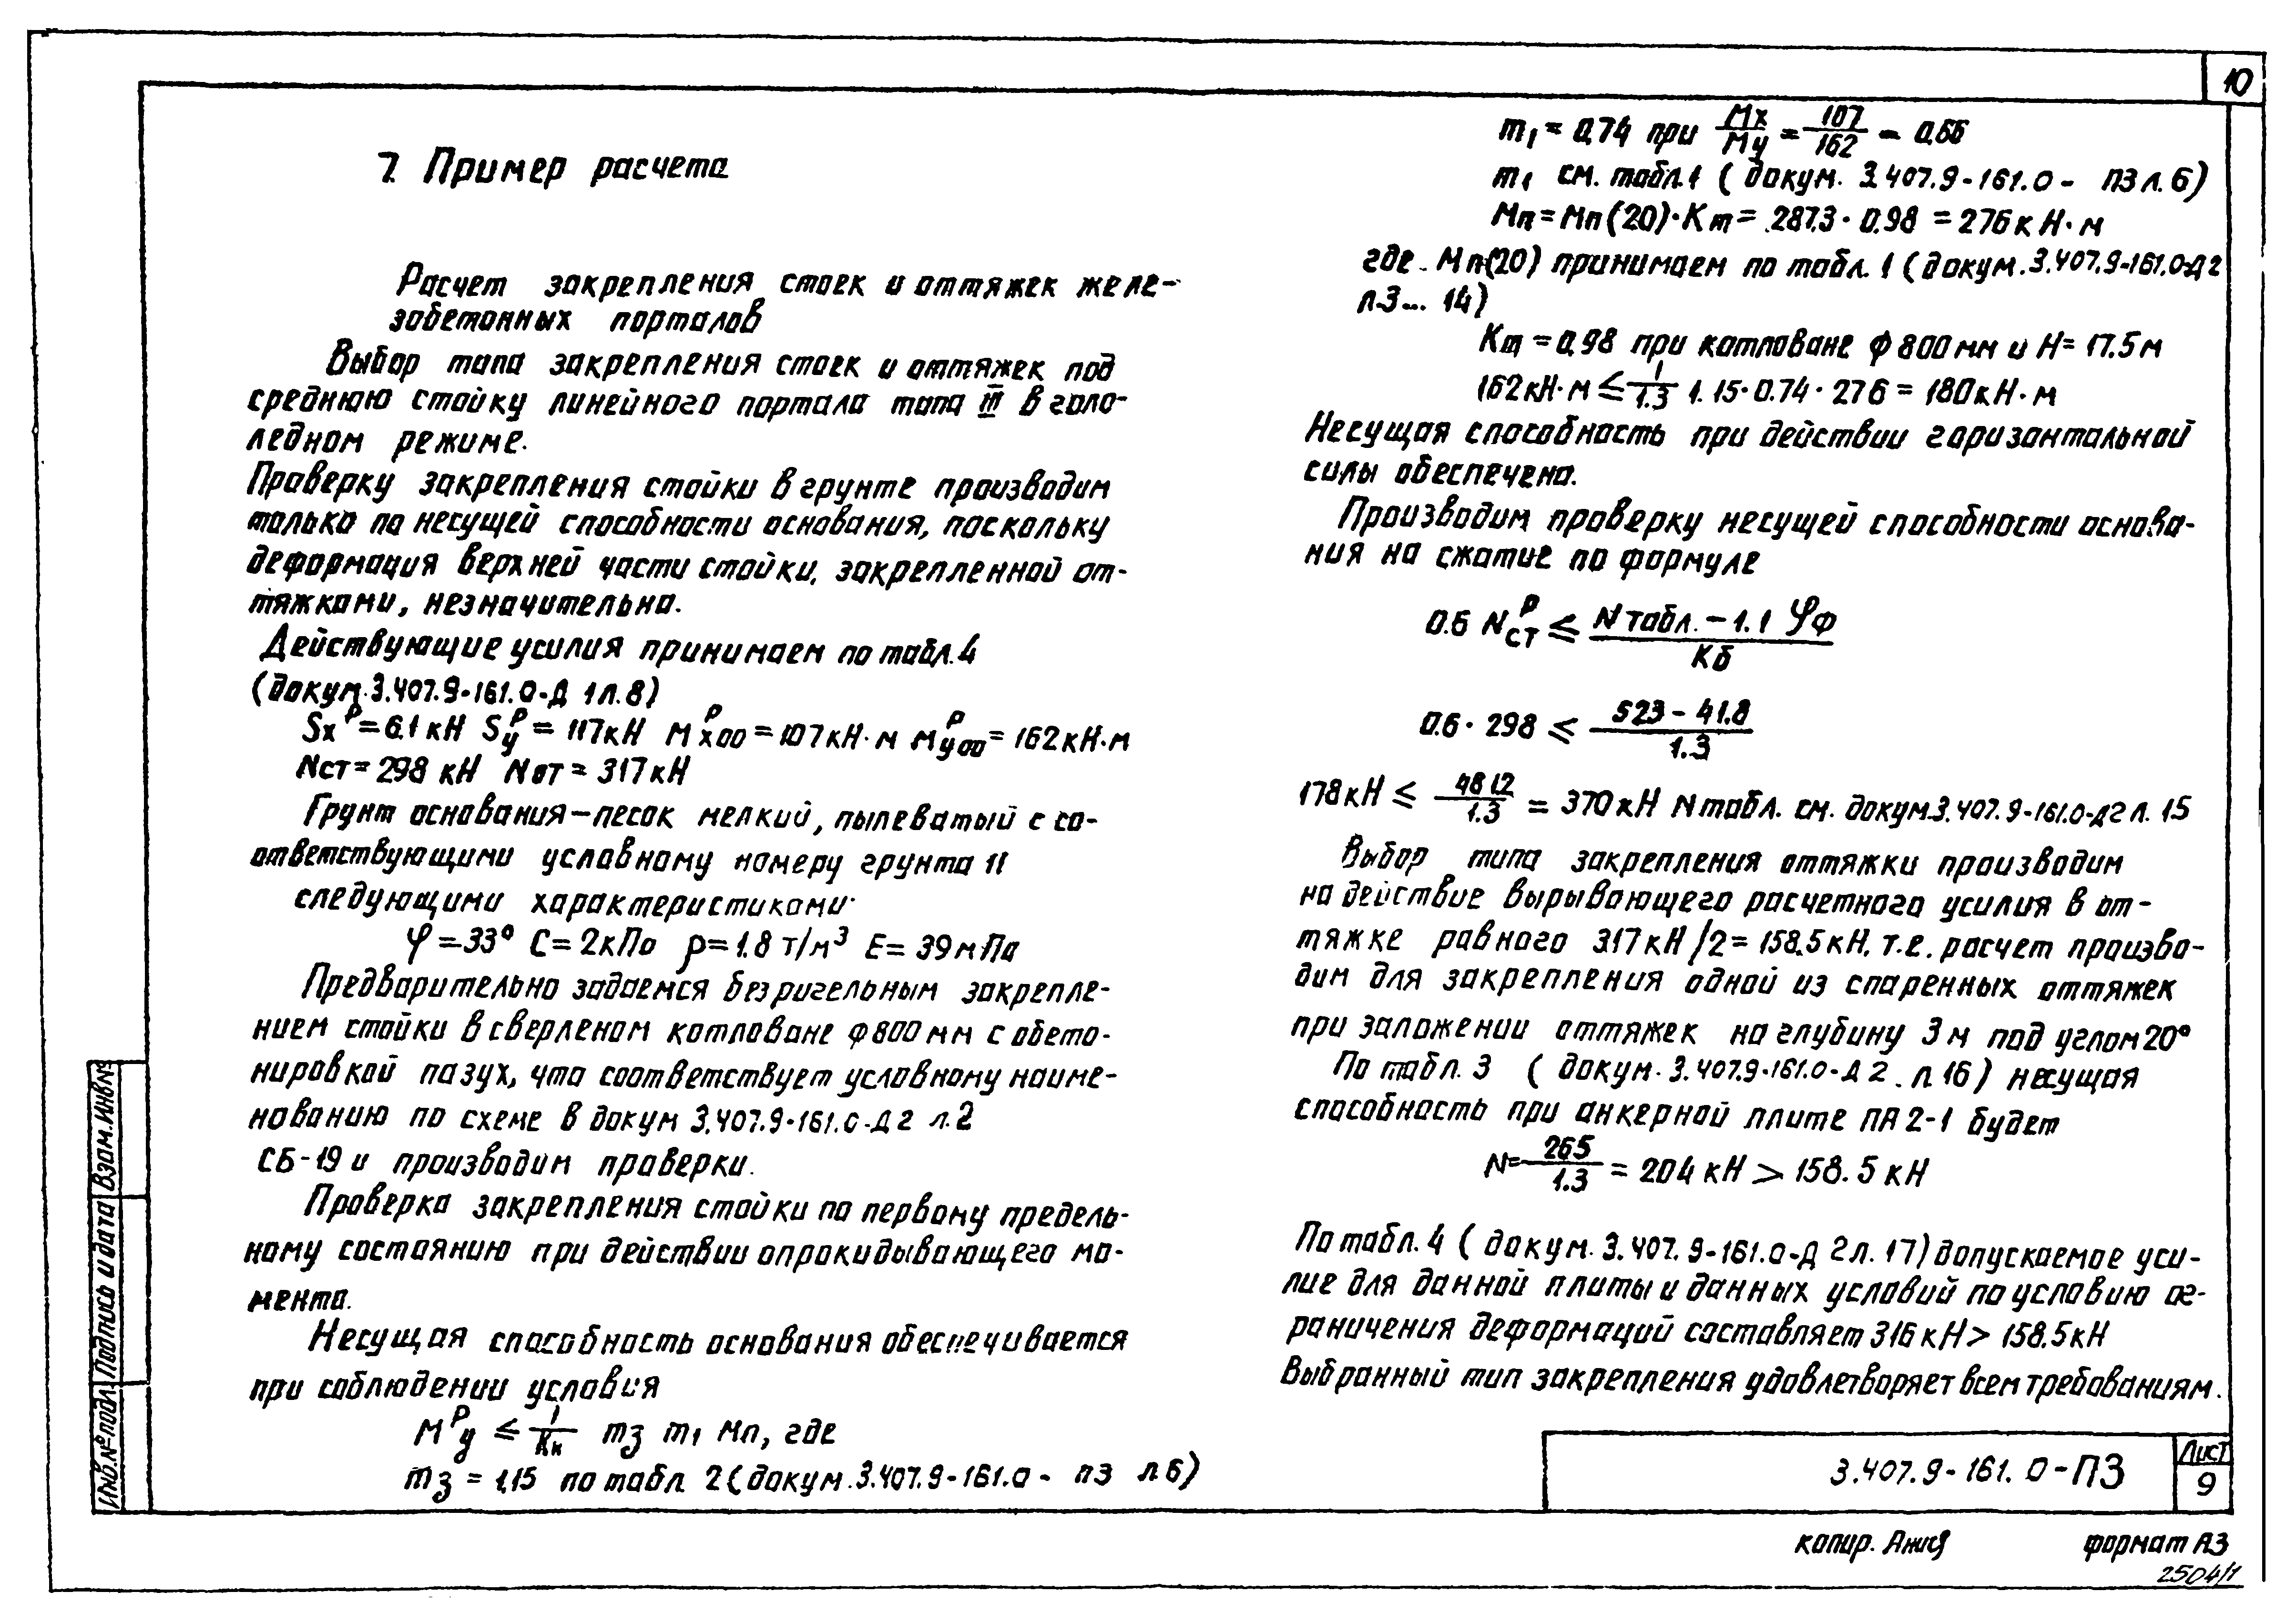 10
7. Пример расчета
Расчет закрепления стоек и оттяжек желе-
зобетонных порталов
Выбор типа закрепления стоек и оттяжек под
среднюю стойку линейного портала типа III в голо-
ледном режиме.
Проверку закрепления стойки в грунте производим
только по несущей способности основания, поскольку
деформация верхней части стойки, закрепленной от-
тяжками, незначительна.
Действующие усилия принимаем по табл. 4
(докум. 3.407.9-161.0-Д 1 л. 8)
Sx^р = 6.1 кН Sу^р = 117 кН М^р х00 = 107 кН·м М^р у00 = 162 кН·м
Nст = 298 кН Nот = 317 кН
Грунт основания – песок мелкий, пылеватый с со-
ответствующими условному номеру грунта 11
следующими характеристиками:
φ = 33° С = 2 кПа ρ = 1.8 т/м³ Е = 39 мПа
Предварительно задаемся безригельным закрепле-
нием стойки в сверленом котловане ф 800 мм с обето-
нировкой пазух, что соответствует условному наиме-
нованию по схеме в докум 3.407.9-161.0-Д2 л. 2
СБ-19 и производим проверки.
Проверка закрепления стойки по первому предель-
ному состоянию при действии опрокидывающего мо-
мента.
Несущая способность основания обеспечивается
при соблюдении условия
М^р у ≤ 1/Кн m3 m1 Мп, где
m3 = 1,15 по табл 2 (докум. 3.407.9-161.0 - ПЗ л 6)
m1 = 0,74 при Мх/Му = 107/162 = 0,66
m1 см. табл. 1 (докум. 3.407.9-161.0 - ПЗ л. 6)
Мп = Мп(20)·Кm = 287.3 · 0.98 = 276 кН·м
где Мп(20) принимаем по табл. 1 (докум. 3.407.9-161.0-Д2
л.3... 14)
Кm = 0,98 при котловане ф 800 мм и Н = 17.5 м
162 кН·м ≤ 1/1.3 1.15·0.74·276 = 180 кН·м
Несущая способность при действии горизонтальной
силы обеспечена.
Производим проверку несущей способности основа-
ния на сжатие по формуле
0.6 N^р ст ≤ (N табл. – 1.1 φф)/Кб
0.6 · 298 ≤ (523 – 41.8)/1.3
178 кН ≤ 481,2/1.3 = 370 кН N табл. см. докум. 3.407.9-161.0-Д2 л. 15
Выбор типа закрепления оттяжки производим
на действие вырывающего расчетного усилия в от-
тяжке равного 317 кН/2 = 158.5 кН, т.е. расчет произво-
дим для закрепления одной из спаренных оттяжек
при заложении оттяжек на глубину 3 м под углом 20°
По табл. 3 (докум. 3.407.9-161.0-Д 2 л. 16) несущая
способность при анкерной плите ПА 2-1 будет
N = 265/1.3 = 204 кН > 158.5 кН
По табл. 4 (докум. 3.407.9-161.0-Д 2 л. 17) допускаемое уси-
лие для данной плиты и данных условий по условию ог-
раничения деформаций составляет 316 кН > 158.5 кН
Выбранный тип закрепления удовлетворяет всем требованиям.
Инв.№ подл. Подпись и дата Взам.инв№
3.407.9-161.0-ПЗ
Лист
9
копир. формат А3
2504/1